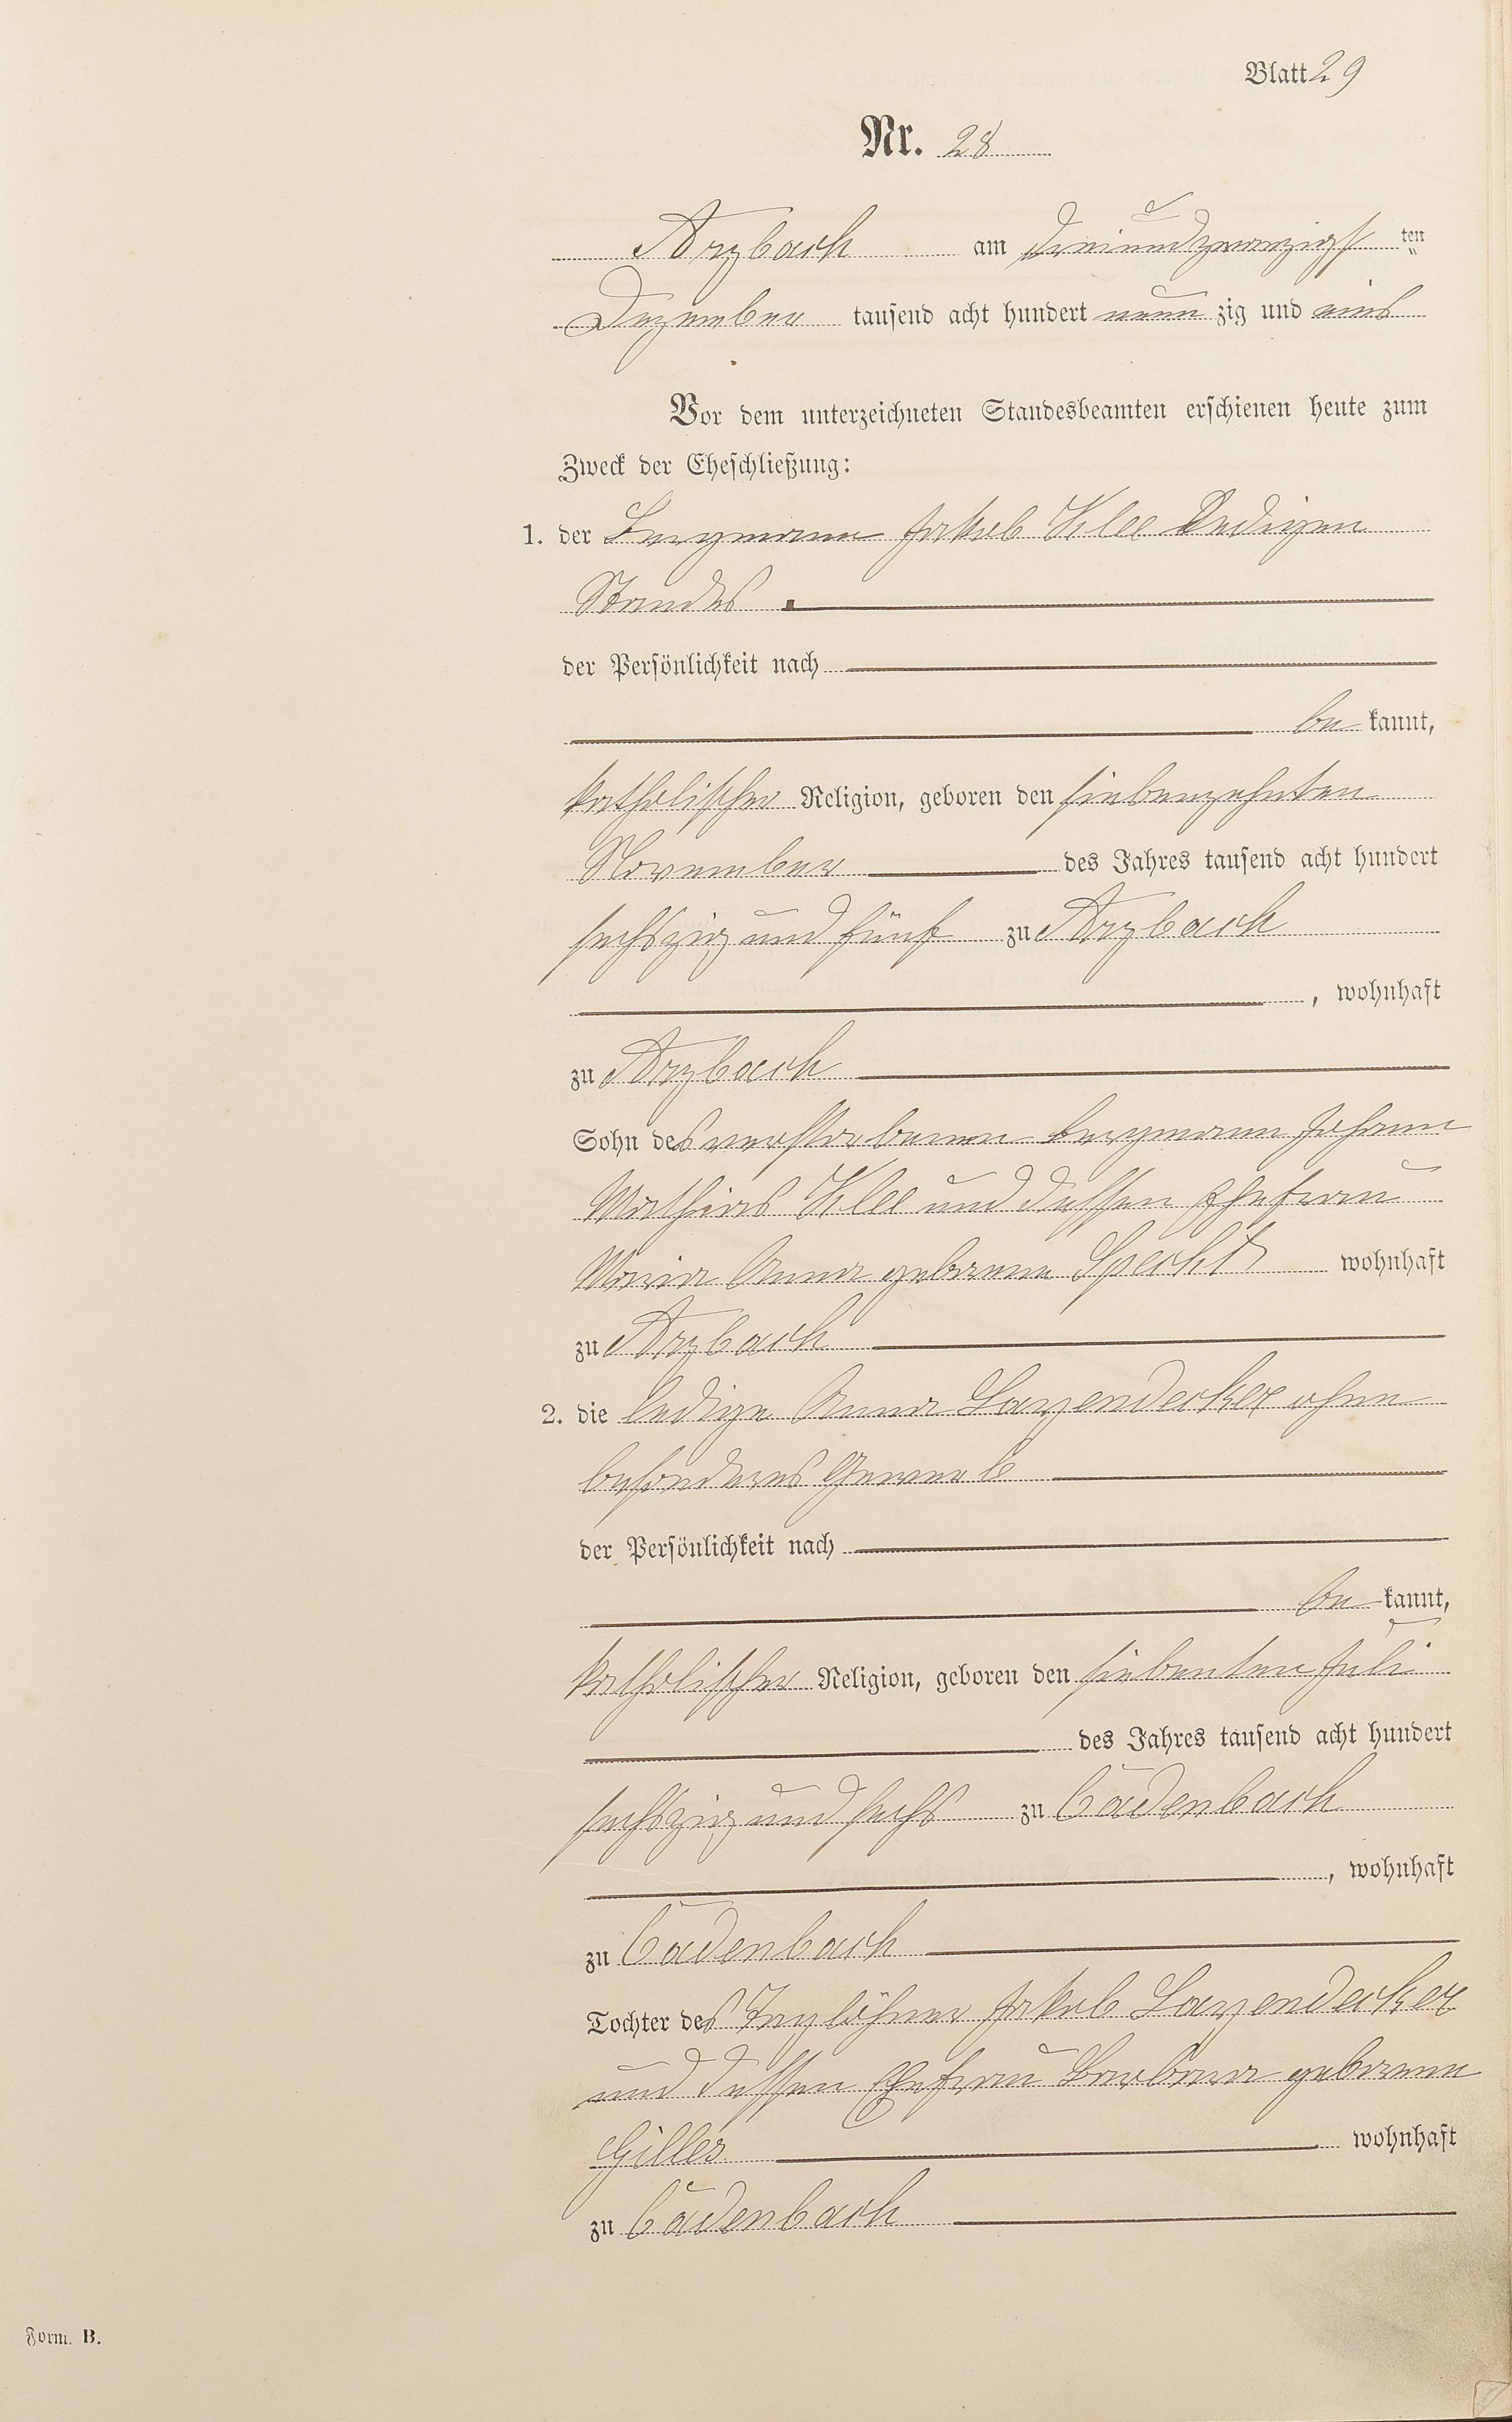 Blatt 29
Nr. 28
Arzbach am dreiundzwanzigst ten
Dezember tausend acht hundert neun zig und eins
Vor dem unterzeichneten Standesbeamten erschienen heute zum
Zweck der Eheschließung:
1. der Bergmann Jakob Klee ledigen
Standes
der Persönlichkeit nach
be kannt,
katholischer Religion, geboren den siebenzehnten
November des Jahres tausend acht hundert
sechszig und fünf zu Arzbach
, wohnhaft
zu Arzbach
Sohn des verstorbenen Bergmann Johann
Mathias Klee und dessen Ehefrau
Maria Anna geborene Specht wohnhaft
zu Arzbach
2. die ledige Anna Langendecker ohne
besonderes Gewerbe
der Persönlichkeit nach
be kannt,
katholischer Religion, geboren den siebenten Juli
des Jahres tausend acht hundert
sechszig und sechs zu Cadenbach
, wohnhaft
zu Cadenbach
Tochter des Taglöhner Jakob Langendecker
und dessen Ehefrau Barbara geborene
Gilles wohnhaft
zu Cadenbach
Form. B.